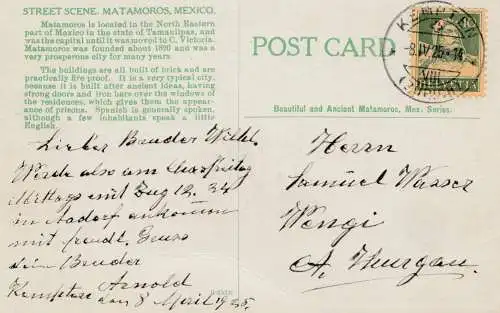 STREET SCENE. MATAMOROS, MEXICO.
Matamoros is located in the North Eastern
part of Mexico in the state of Tamaulipas, and
was the capital until it was moved to C. Victoria.
Matamoros was founded about 1820 and was a
very prosperous city for many years.
The buildings are all built of brick and are
practically fire proof. It is a very typical city,
because it is built after ancient ideas, having
strong doors and iron bars over the windows of
the residences, which gives them the appear-
ance of prisons. Spanish is generally spoken,
although a few inhabitants speak a little
English.
POST CARD
KEMPTEN
-8.IV.25.-14
VIII
HELVETIA
Beautiful and Ancient Matamoros, Mex. Series.
Lieber Bruder Wilh.
Werde also am Charfreitag
Mittags mit Zug 12.34
in Aadorf ankommen
mit freudl. Gruss
dein Bruder
Arnold
Kempten den 8 April 1925.
Herrn
Samuel Wasser
Wengi
Kt. Thurgau.